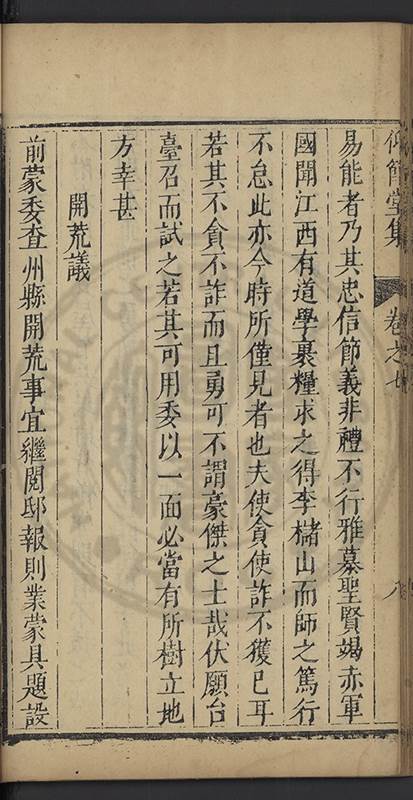 仰節堂集 卷之七 八
易能者乃其忠信節義非禮不行雅慕聖賢竭赤軍
國聞江西有道學裹糧求之得李櫧山而師之篤行
不怠此亦今時所僅見者也夫使貪使詐不獲已耳
若其不貪不詐而且勇可不謂豪傑之士哉伏願台
臺召而試之若其可用委以一面必當有所樹立地
方幸甚
開荒議
前蒙委查州縣開荒事宜繼閱邸報則業蒙具題設